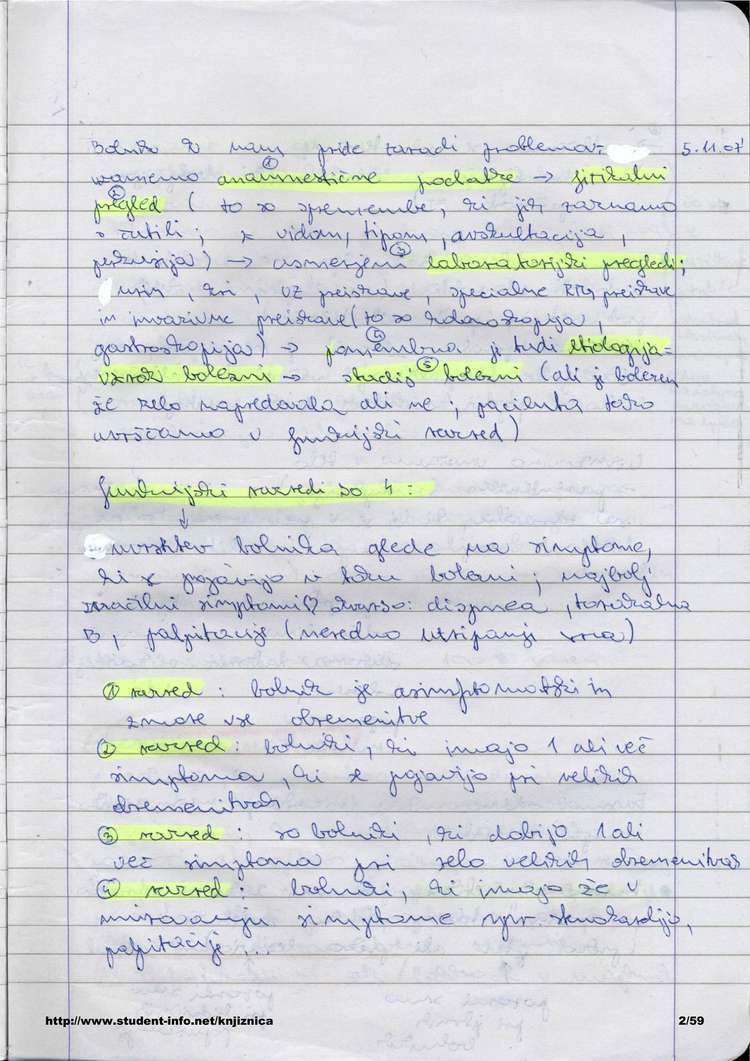 Bolnik k nam pride zaradi problemov: 5.11.07
vzamemo anamnestične podatke → fizikalni
pregled ( to so spremembe, ki jih zaznamo
s čutili; z vidom, tipom, avskultacija,
perkusija) → usmerjeni laboratorijski pregledi;
urin, kri, UZ preiskave, specialne RTG preiskave
in invazivne preiskave (to so kolonoskopija,
gastroskopija) → pomembna je tudi etiologija-
vzrok bolezni → stadij bolezni (ali je bolezen
že zelo napredovala ali ne; pacienta tako
uvrščamo v funkcijski razred)
funkcijski razredi so 4:
↓
uvrstitev bolnika glede na simptome,
ki se pojavijo v toku bolezni; najbolj
značilni simptomi so: dispnea, torakalna
B, palpitacije (neredno utripanje srca)
① razred : bolnik je asimptomatski in
zmore vse obremenitve
② razred : bolniki, ki imajo 1 ali več
simptoma, ki se pojavijo pri velikih
obremenitvah
③ razred : so bolniki, ki dobijo 1 ali
več simptoma pri zelo velikih obremenitvah
④ razred : bolniki, ki imajo že v
mirovanju simptome npr. stenokardijo,
palpitacije,...
http://www.student-info.net/knjiznica 2/59